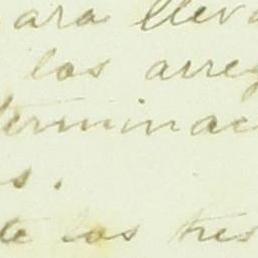 ara lleva
los arreg
terminac
s.
te los tres